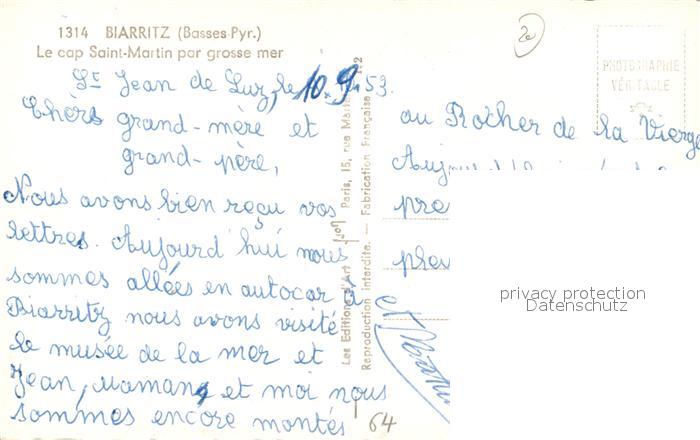 1314 BIARRITZ (Basses-Pyr.)
Le cap Saint-Martin par grosse mer
2e
PHOTOGRAPHIE
VÉRITABLE
St Jean de Luz, le 10.9.53.
Chers grand-mère et
grand-père,
Nous avons bien reçu vos
lettres. Aujourd'hui nous
sommes allées en autocar à
Biarritz nous avons visité
le musée de la mer et
Jean, Maman, et moi nous
sommes encore montés
au Rocher de la Vierge
pre
pleu
et
64
Les Editions d'Art Paris, 15, rue Mart
Reproduction interdite. — Fabrication Française
privacy protection
Datenschutz